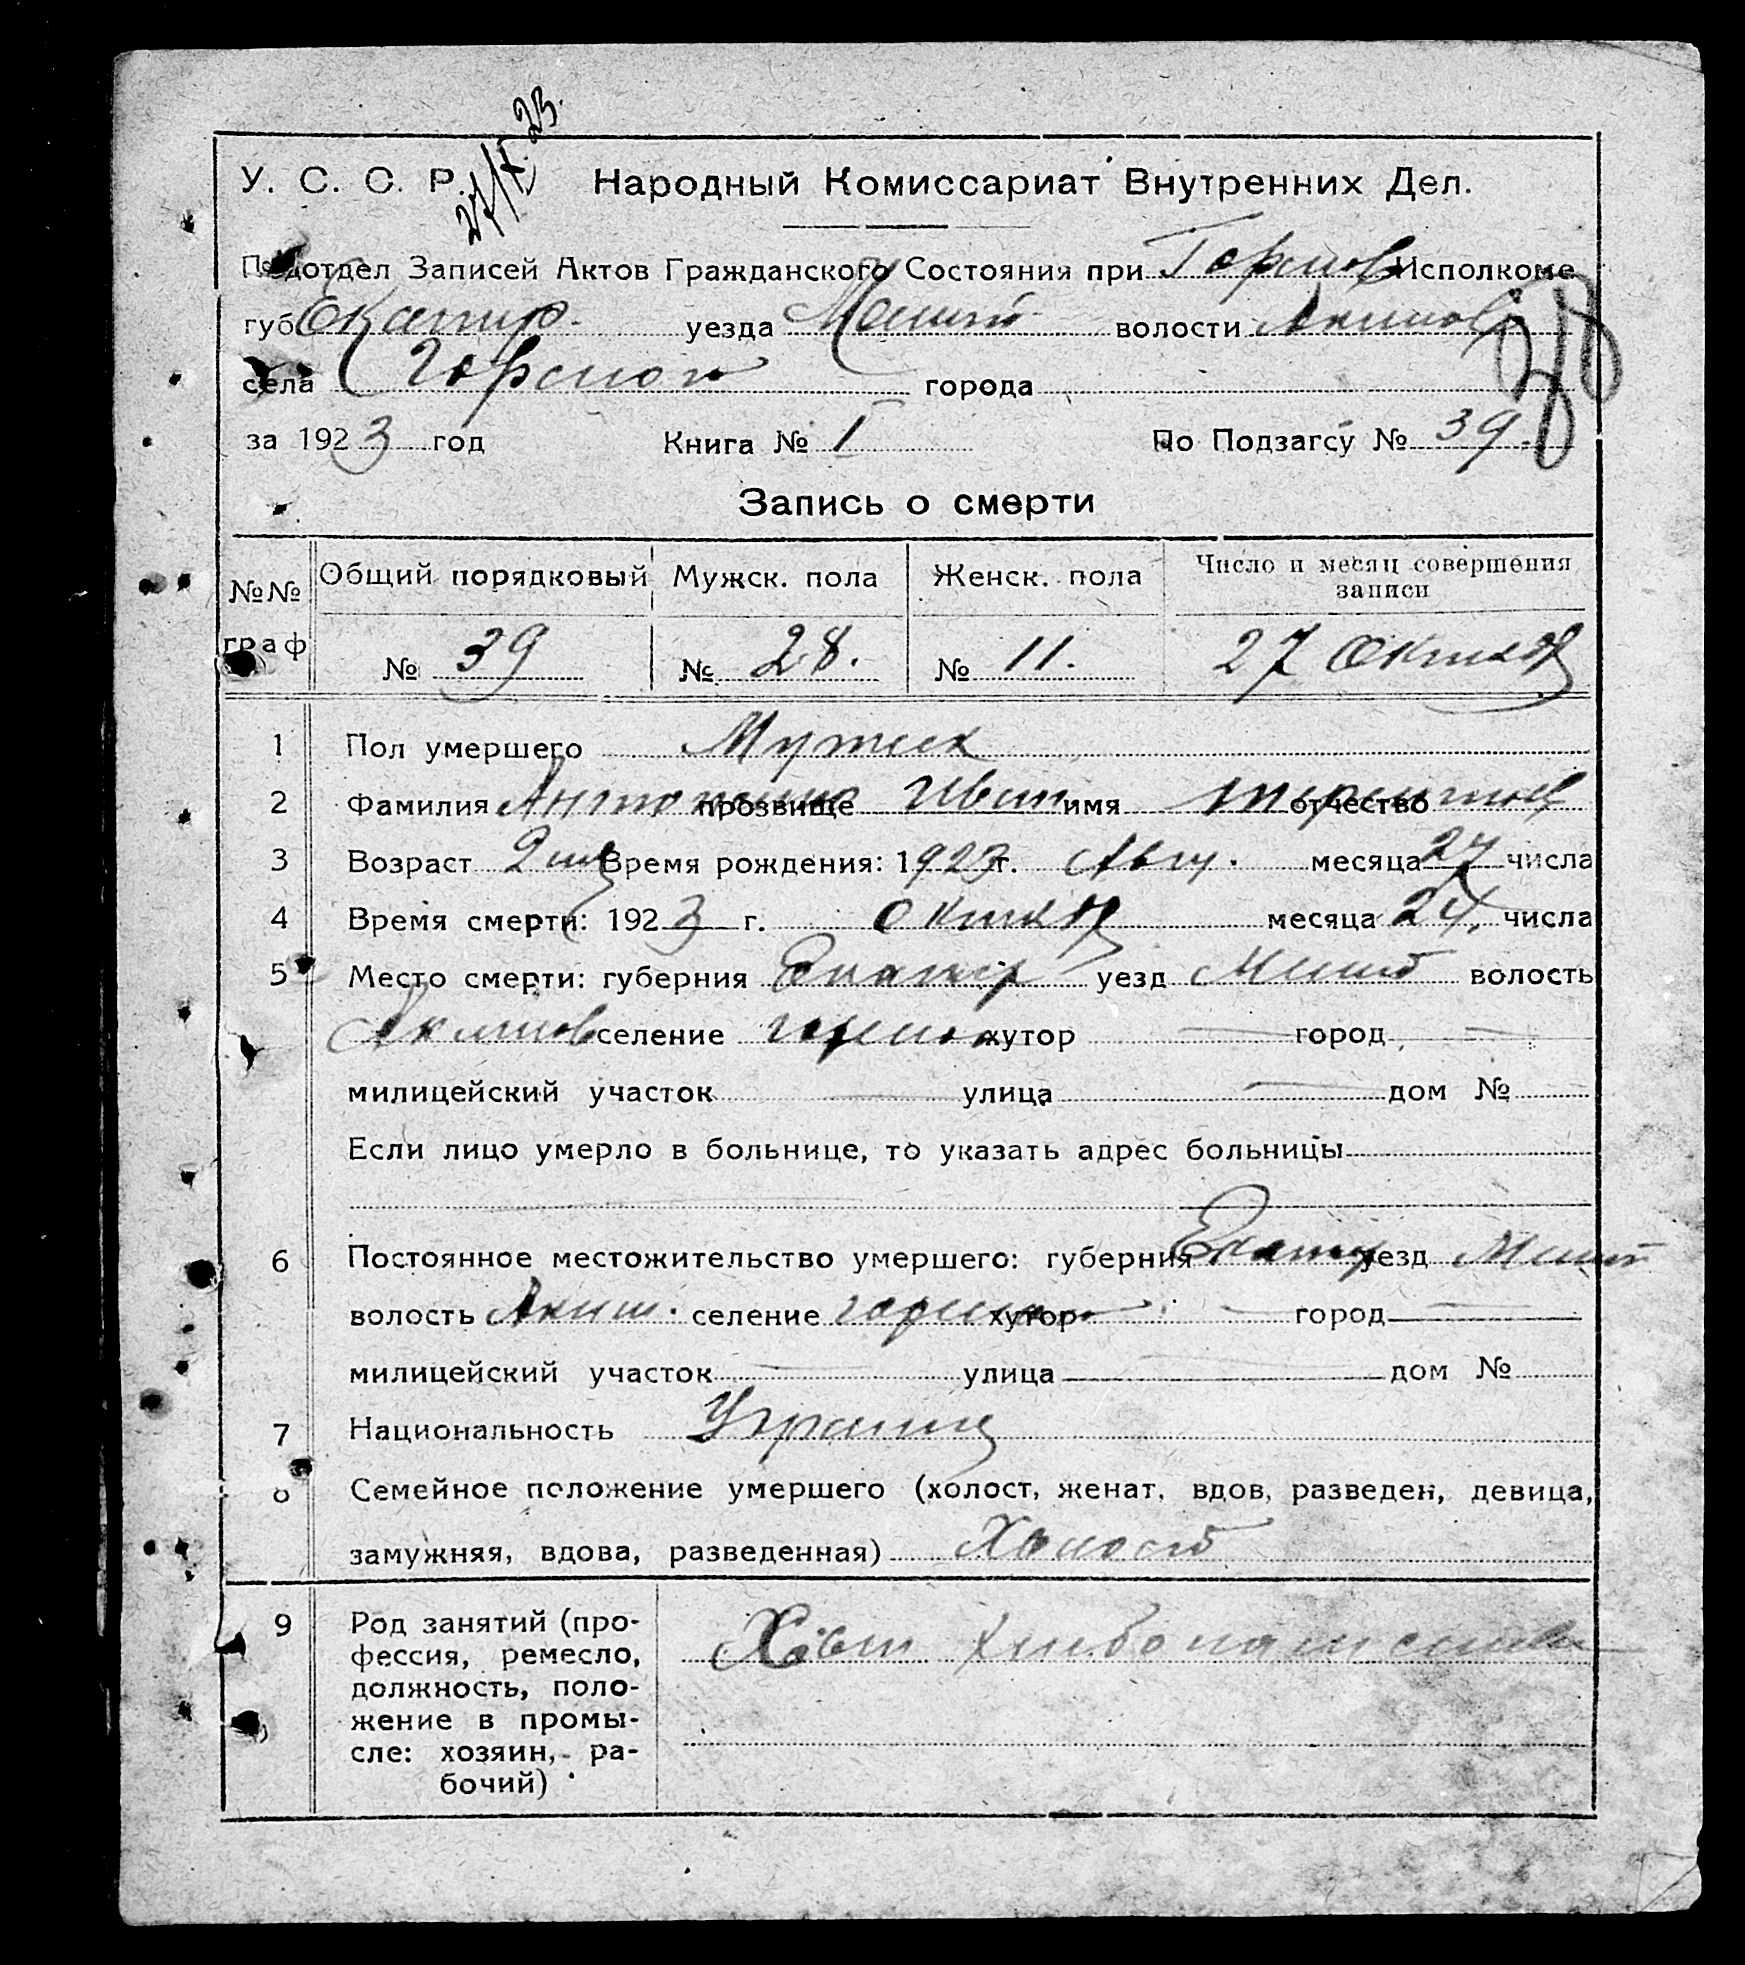 27/X 23.
У. С. С. Р. Народный Комиссариат Внутренних Дел.
Подотдел Записей Актов Гражданского Состояния при Исполкоме
губ. Екатир. уезда волости Акимов
села Горского города
за 1923 год Книга № I По Подзагсу № 39.
28
Запись о смерти
№№ граф Общий порядковый Мужск. пола Женск. пола Число и месяц совершения записи
№ 39 № 28. № 11. 27 Октяб
1 Пол умершего Мужск
2 Фамилия прозвище Иван имя отчество
3 Возраст 2 Время рождения: 1923 г. Авгу. месяца 27 числа
4 Время смерти: 1923 г. Октяб месяца 24 числа
5 Место смерти: губерния Екатер уезд Мелит волость
Акимов селение хутор — город —
милицейский участок — улица — дом №
Если лицо умерло в больнице, то указать адрес больницы
6 Постоянное местожительство умершего: губерния Екатер уезд Мелит
волость Аким. селение хутор — город —
милицейский участок — улица — дом №
7 Национальность Украинц
8 Семейное положение умершего (холост, женат, вдов, разведен, девица,
замужняя, вдова, разведенная) Холост
9 Род занятий (про-
фессия, ремесло,
должность, поло-
жение в промы-
сле: хозяин, ра-
бочий)